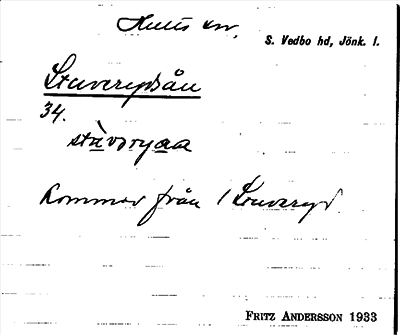 Hults sn,
S. Vedbo hd, Jönk. l.
Stuverydsån
34.
stùvəryaa
Kommer från / Stuveryd.
FRITZ ANDERSSON 1933